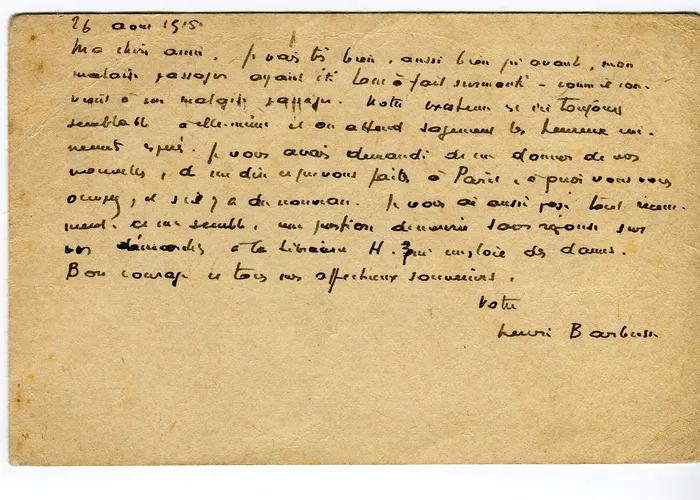 26 aout 1915
Ma chère amie. Je vais très bien, aussi bien qu'avant, mon
malaise passager ayant été tout à fait surmonté – comme il con-
vient à un malaise passager. Notre existence ici toujours
semblable à elle-même et on attend sagement les heureux
espéré. Je vous avais demandé de me donner de vos
nouvelles, de me dire ce que vous faites à Paris, à quoi vous vous
occupez, et s'il y a du nouveau. Je vous ai aussi posé tout récem-
ment, ce me semble, une question demeurée sans réponse sur
vos démarches à la librairie H. qui emploie des dames.
Bon courage et tous mes affectueux souvenirs.
Votre
Henri Barbusse